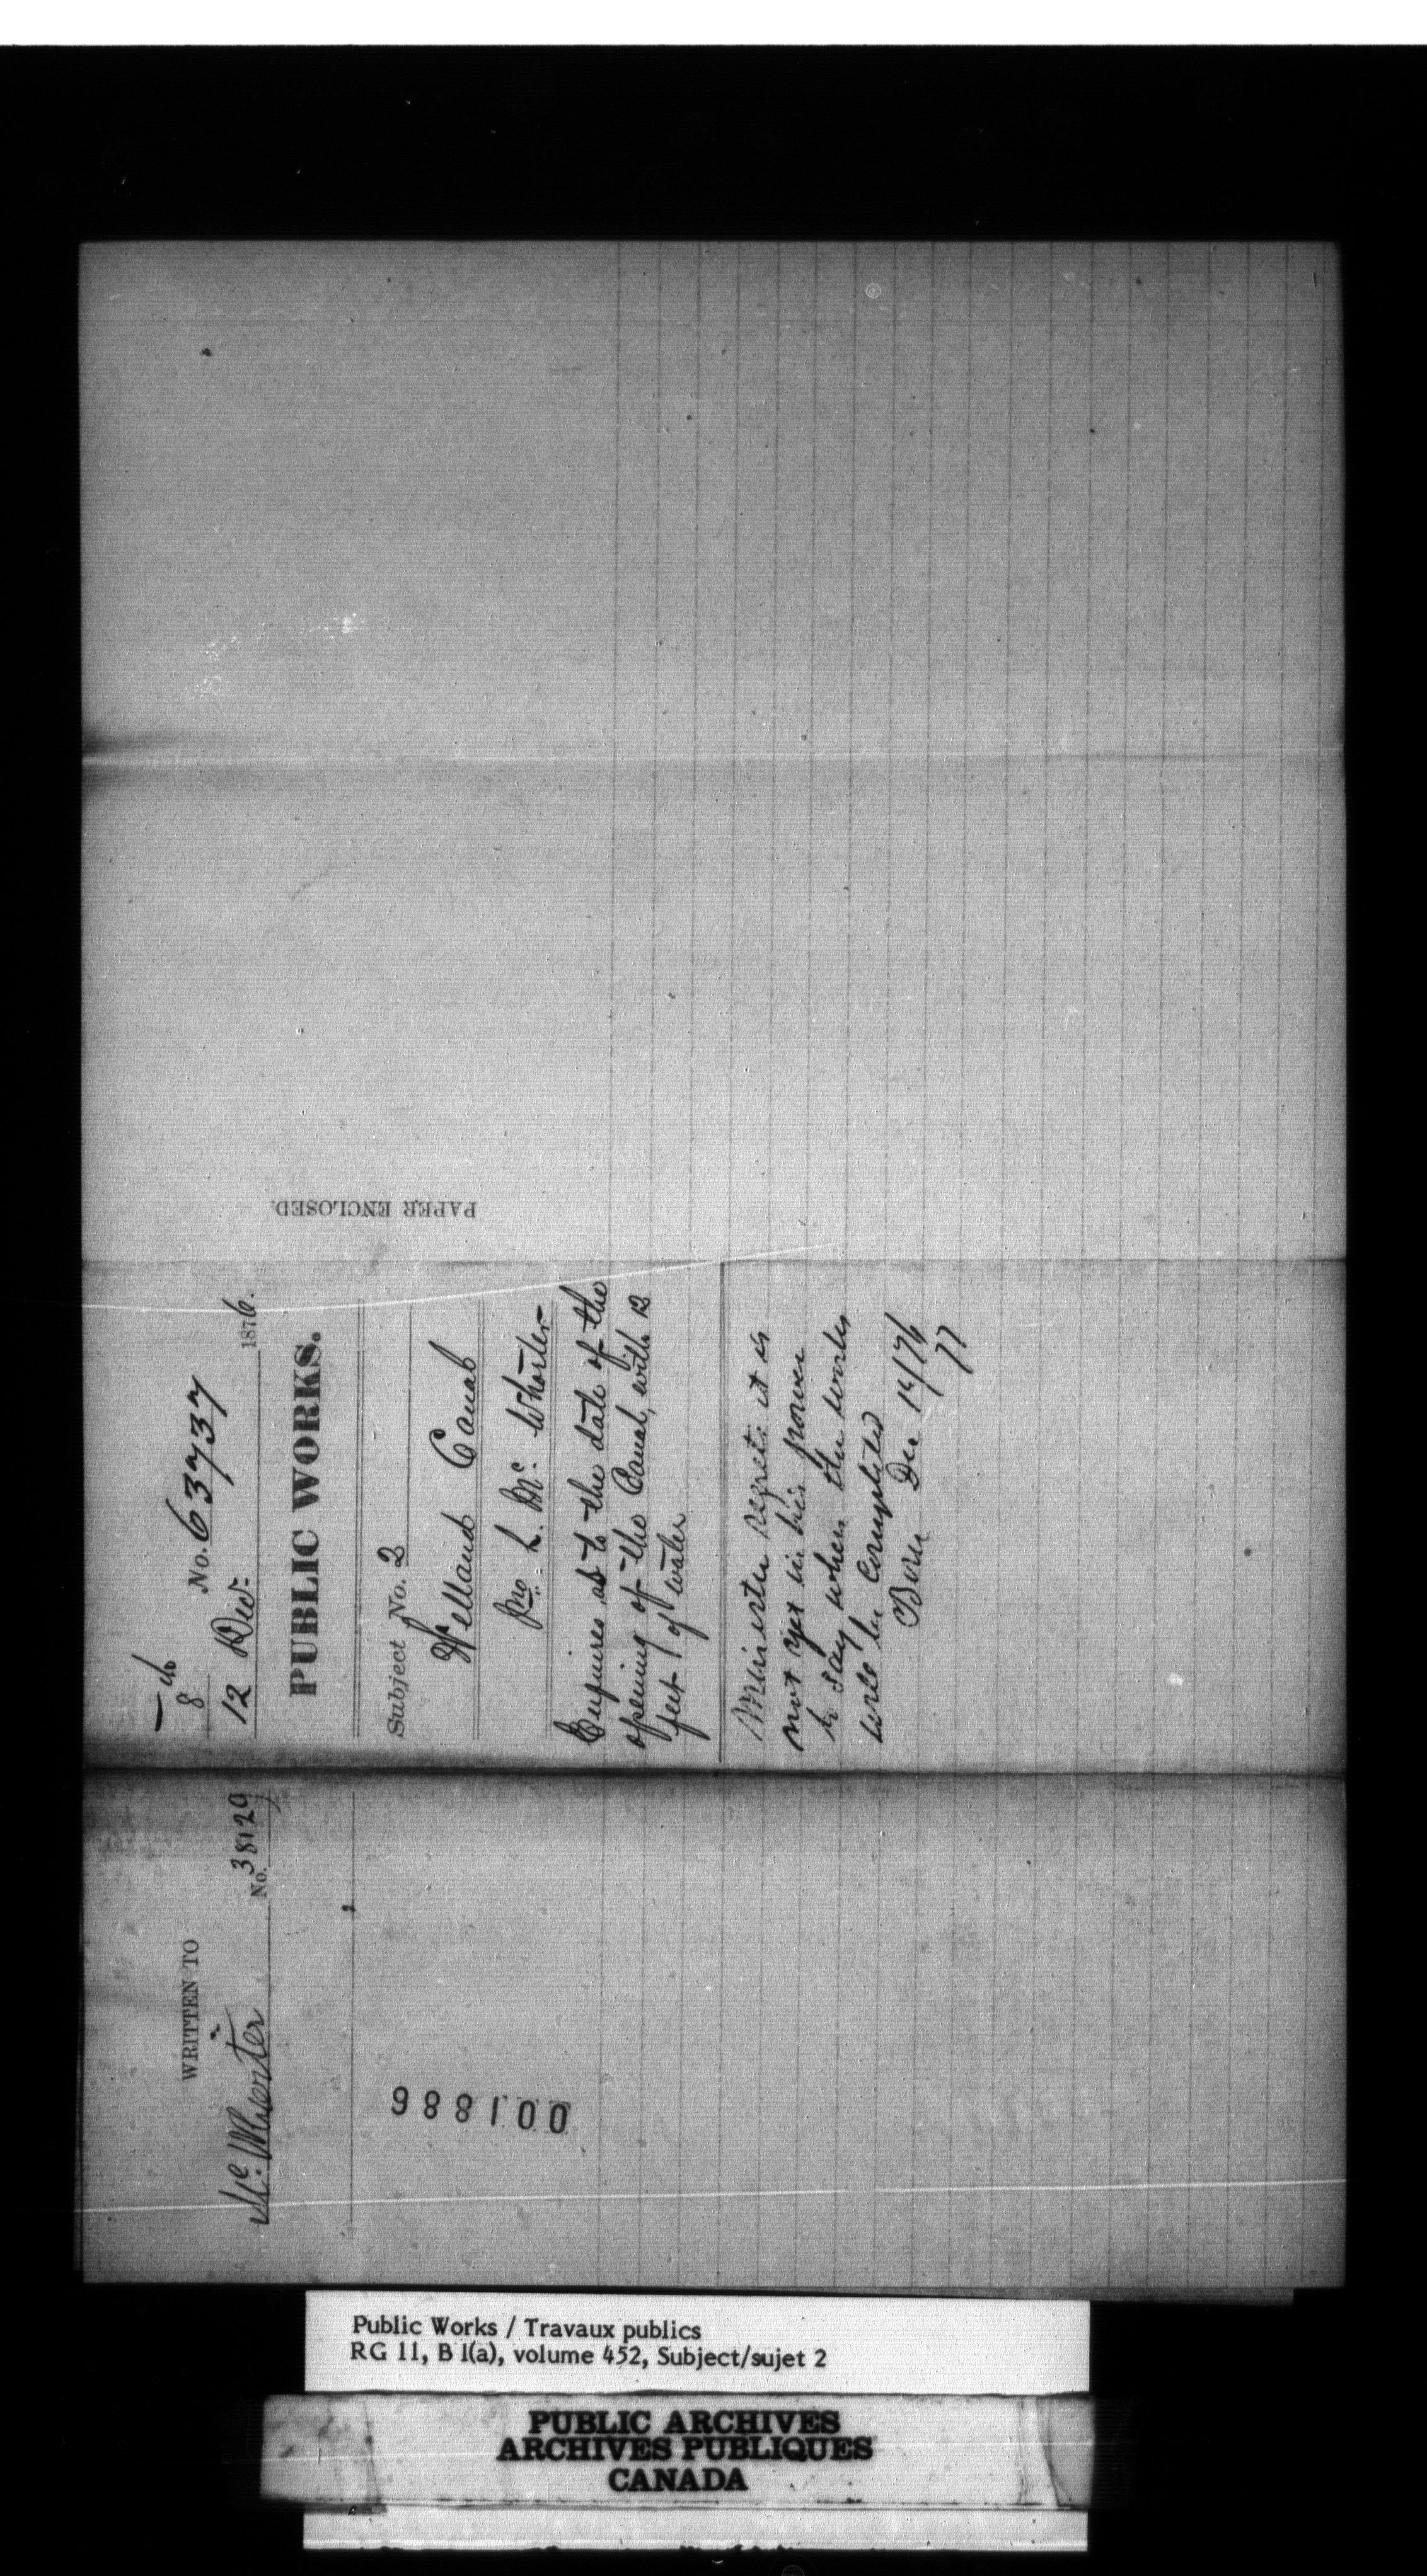 No. 63737
12 Decr 1876.
PUBLIC WORKS.
Subject No. 2
Welland Canal
Jno. L. Mc. Whorter
Enquires as to the date of the
opening of the Canal, with 12
feet of water
Minister regrets it is
not yet in his power
to say when the works
will be completed
Dec 14/76
77
PAPER ENCLOSED.
WRITTEN TO
Mc. Whorter No. 38129
001886
Public Works / Travaux publics
RG 11, B 1(a), volume 452, Subject/sujet 2
PUBLIC ARCHIVES
ARCHIVES PUBLIQUES
CANADA